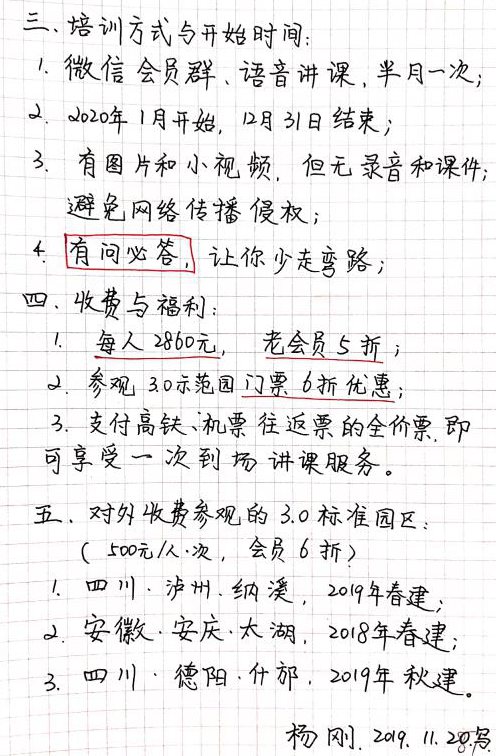 三、培训方式与开始时间:
1. 微信会员群、语音讲课,半月一次;
2. 2020年1月开始,12月31日结束;
3. 有图片和小视频,但无录音和课件;
避免网络传播侵权;
4. 有问必答,让你少走弯路;
四、收费与福利:
1. 每人2860元,老会员5折;
2. 参观3.0示范园门票6折优惠;
3. 支付高铁、机票往返票的全价票,即
可享受一次到场讲课服务。
五、对外收费参观的3.0标准园区:
(500元/人·次,会员6折)
1. 四川·泸州·纳溪,2019年春建;
2. 安徽·安庆·太湖,2018年春建;
3. 四川·德阳·什邡,2019年秋建。
杨刚.2019.11.20写